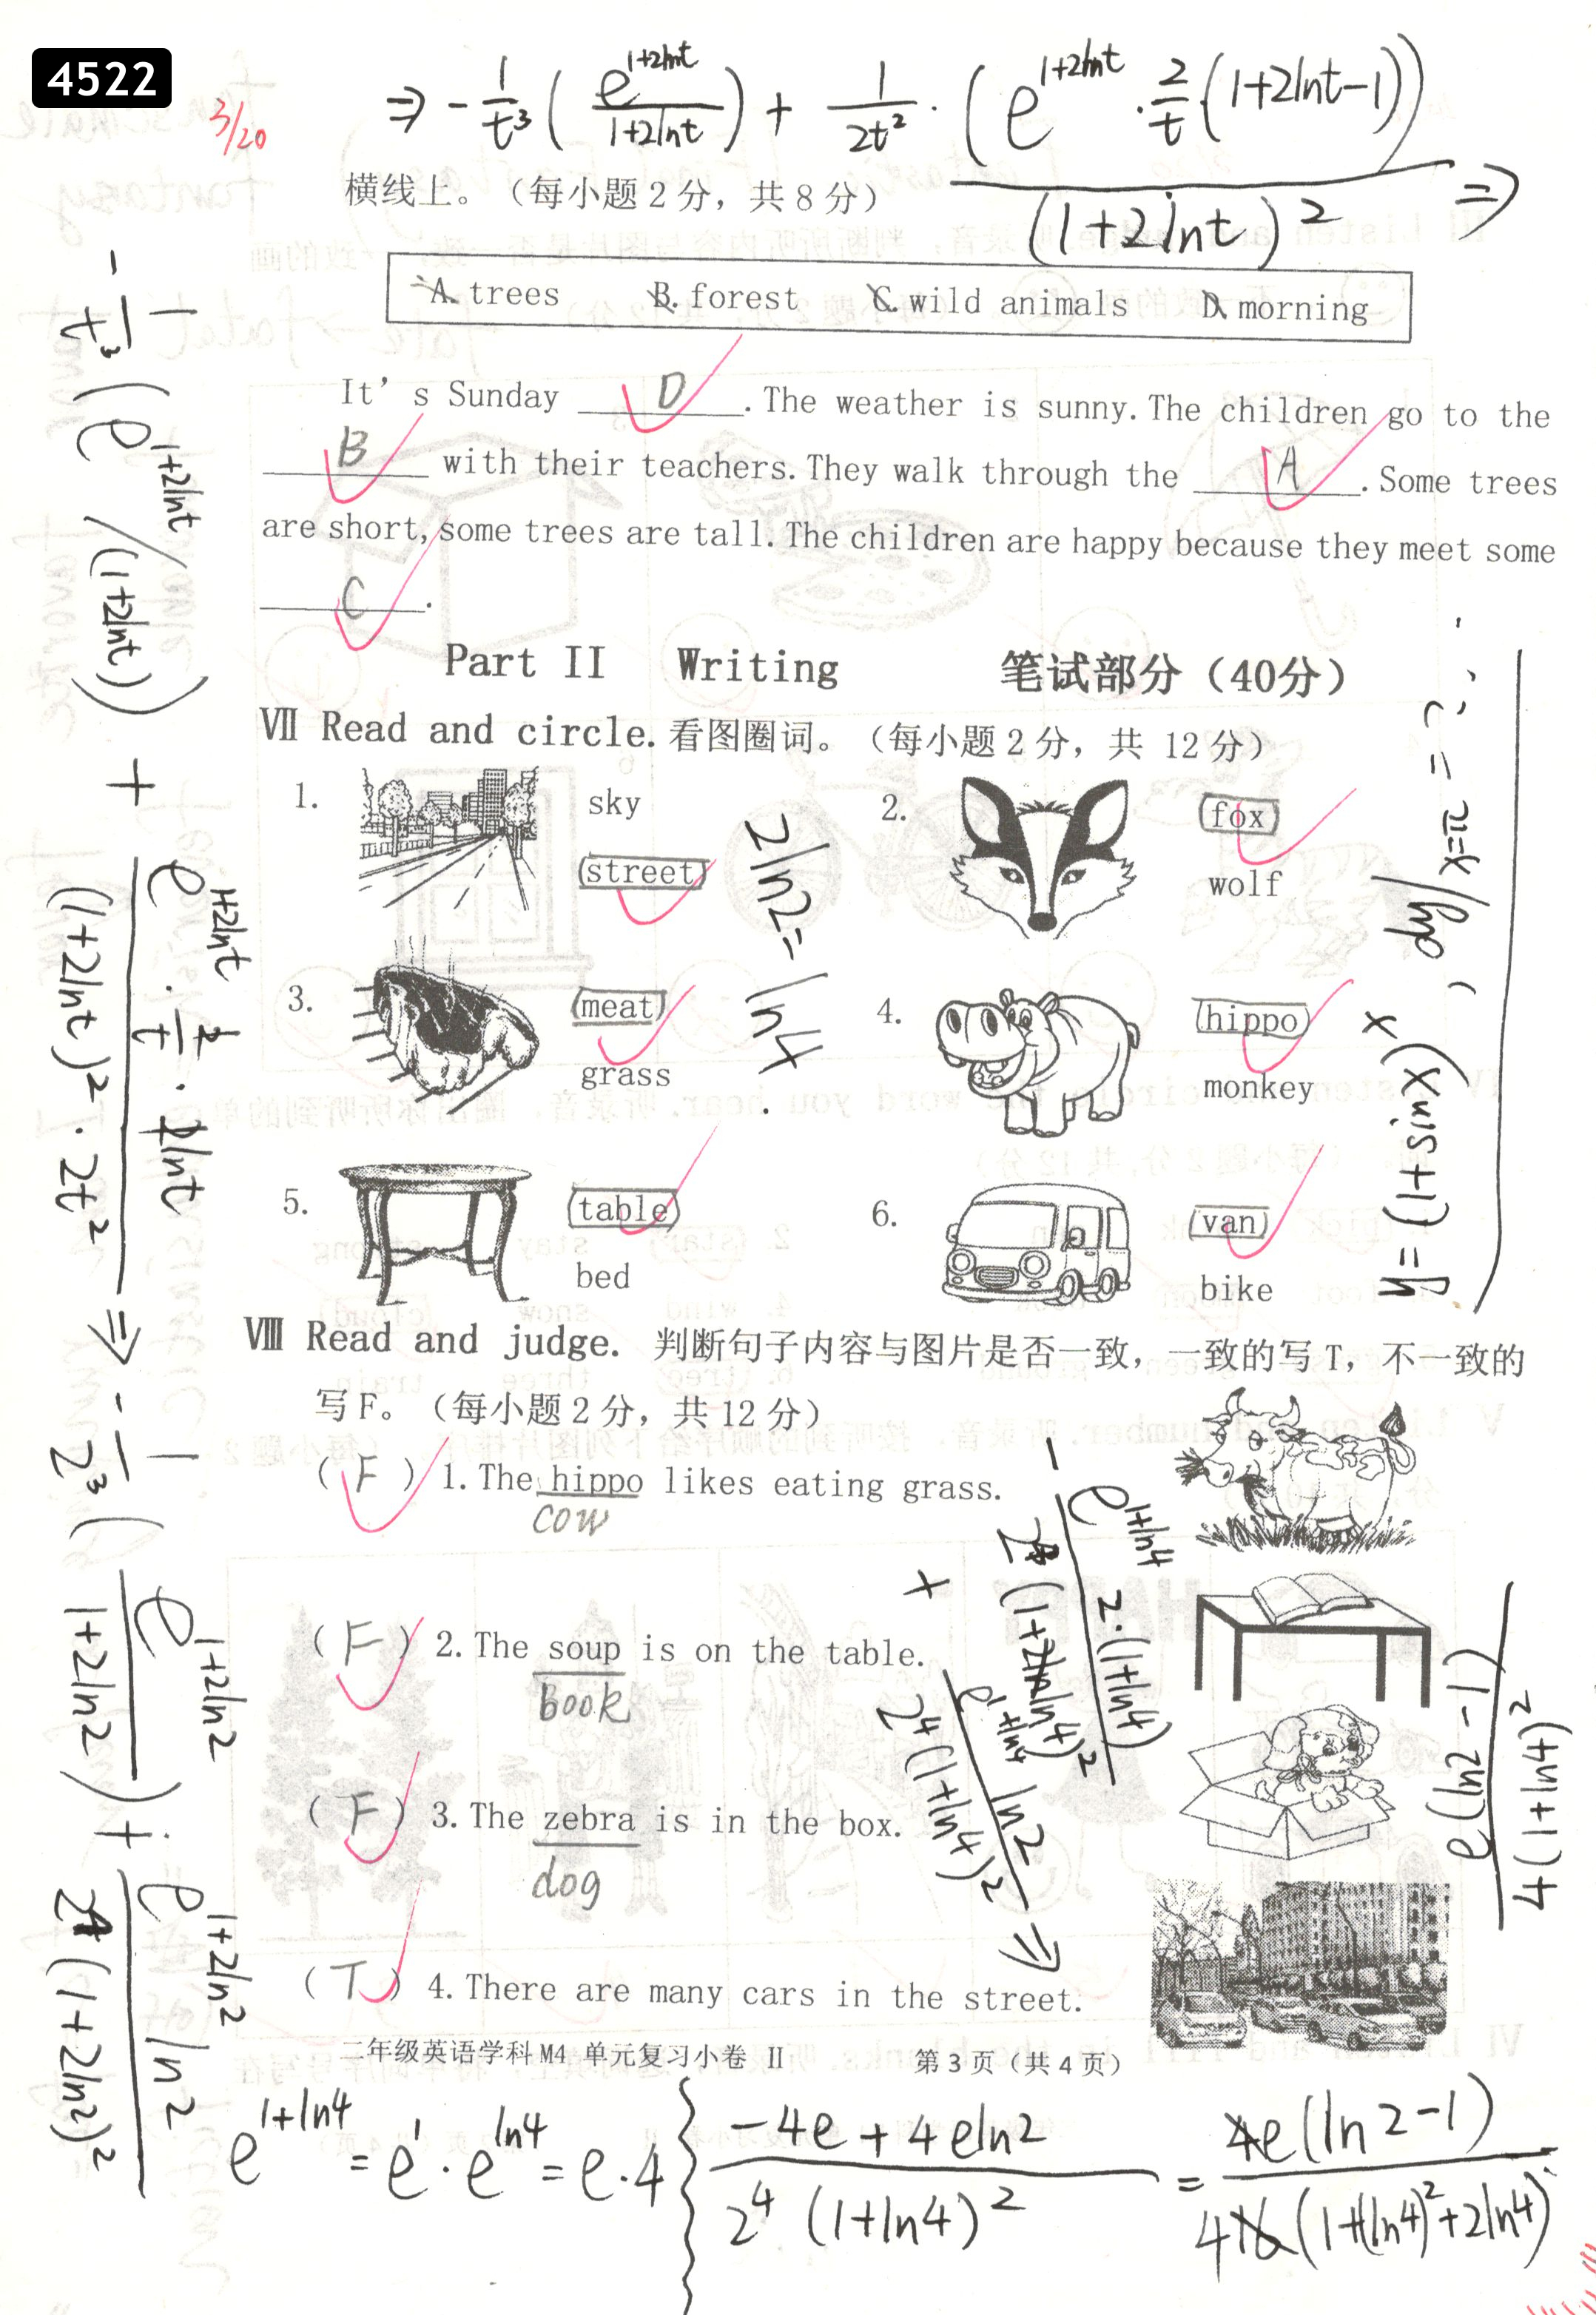 4522
3/20
⇒ - 1/t³ ( e^(1+2lnt) / (1+2lnt) ) + 1/(2t²) · ( e^(1+2lnt) · 2/t · (1+2lnt-1) ) / (1+2lnt)² ⇒
横线上。（每小题 2 分，共 8 分）
A. trees B. forest C. wild animals D. morning
It's Sunday D. The weather is sunny. The children go to the
B with their teachers. They walk through the A. Some trees
are short, some trees are tall. The children are happy because they meet some
C.
Part II Writing 笔试部分（40分）
Ⅶ Read and circle. 看图圈词。（每小题 2 分，共 12 分）
1. sky
street
2. fox
wolf
3. meat
grass
4. hippo
monkey
5. table
bed
6. van
bike
2ln2 = ln4
y = (1+sinx)^x , dy/x=π = ?
Ⅷ Read and judge. 判断句子内容与图片是否一致，一致的写 T，不一致的
写 F。（每小题 2 分，共 12 分）
（ F ） 1. The hippo likes eating grass.
cow
（ F ） 2. The soup is on the table.
book
（ F ） 3. The zebra is in the box.
dog
（ T ） 4. There are many cars in the street.
二年级英语学科 M4 单元复习小卷 II 第 3 页（共 4 页）
- 1/t³ ( e^(1+2lnt) / (1+2lnt) ) + e^(1+2lnt) · 2/t · 2lnt / (1+2lnt)² · 2t² ⇒ - 1/2³ ( e^(1+2ln2) / (1+2ln2) ) + e^(1+2ln2) ln2 / 2⁴ (1+2ln2)²
- e^(1+ln4) 2·(1+ln4) / 2⁴ (1+ln4)²
+ e^(1+ln4) ln2 / 2⁴ (1+ln4)² ⇒
e(ln2-1) / 4(1+ln4)²
e^(1+ln4) = e^1 · e^(ln4) = e·4
(-4e + 4eln2) / 2⁴ (1+ln4)² = 4e(ln2-1) / 4 16 (1+(ln4)²+2ln4)